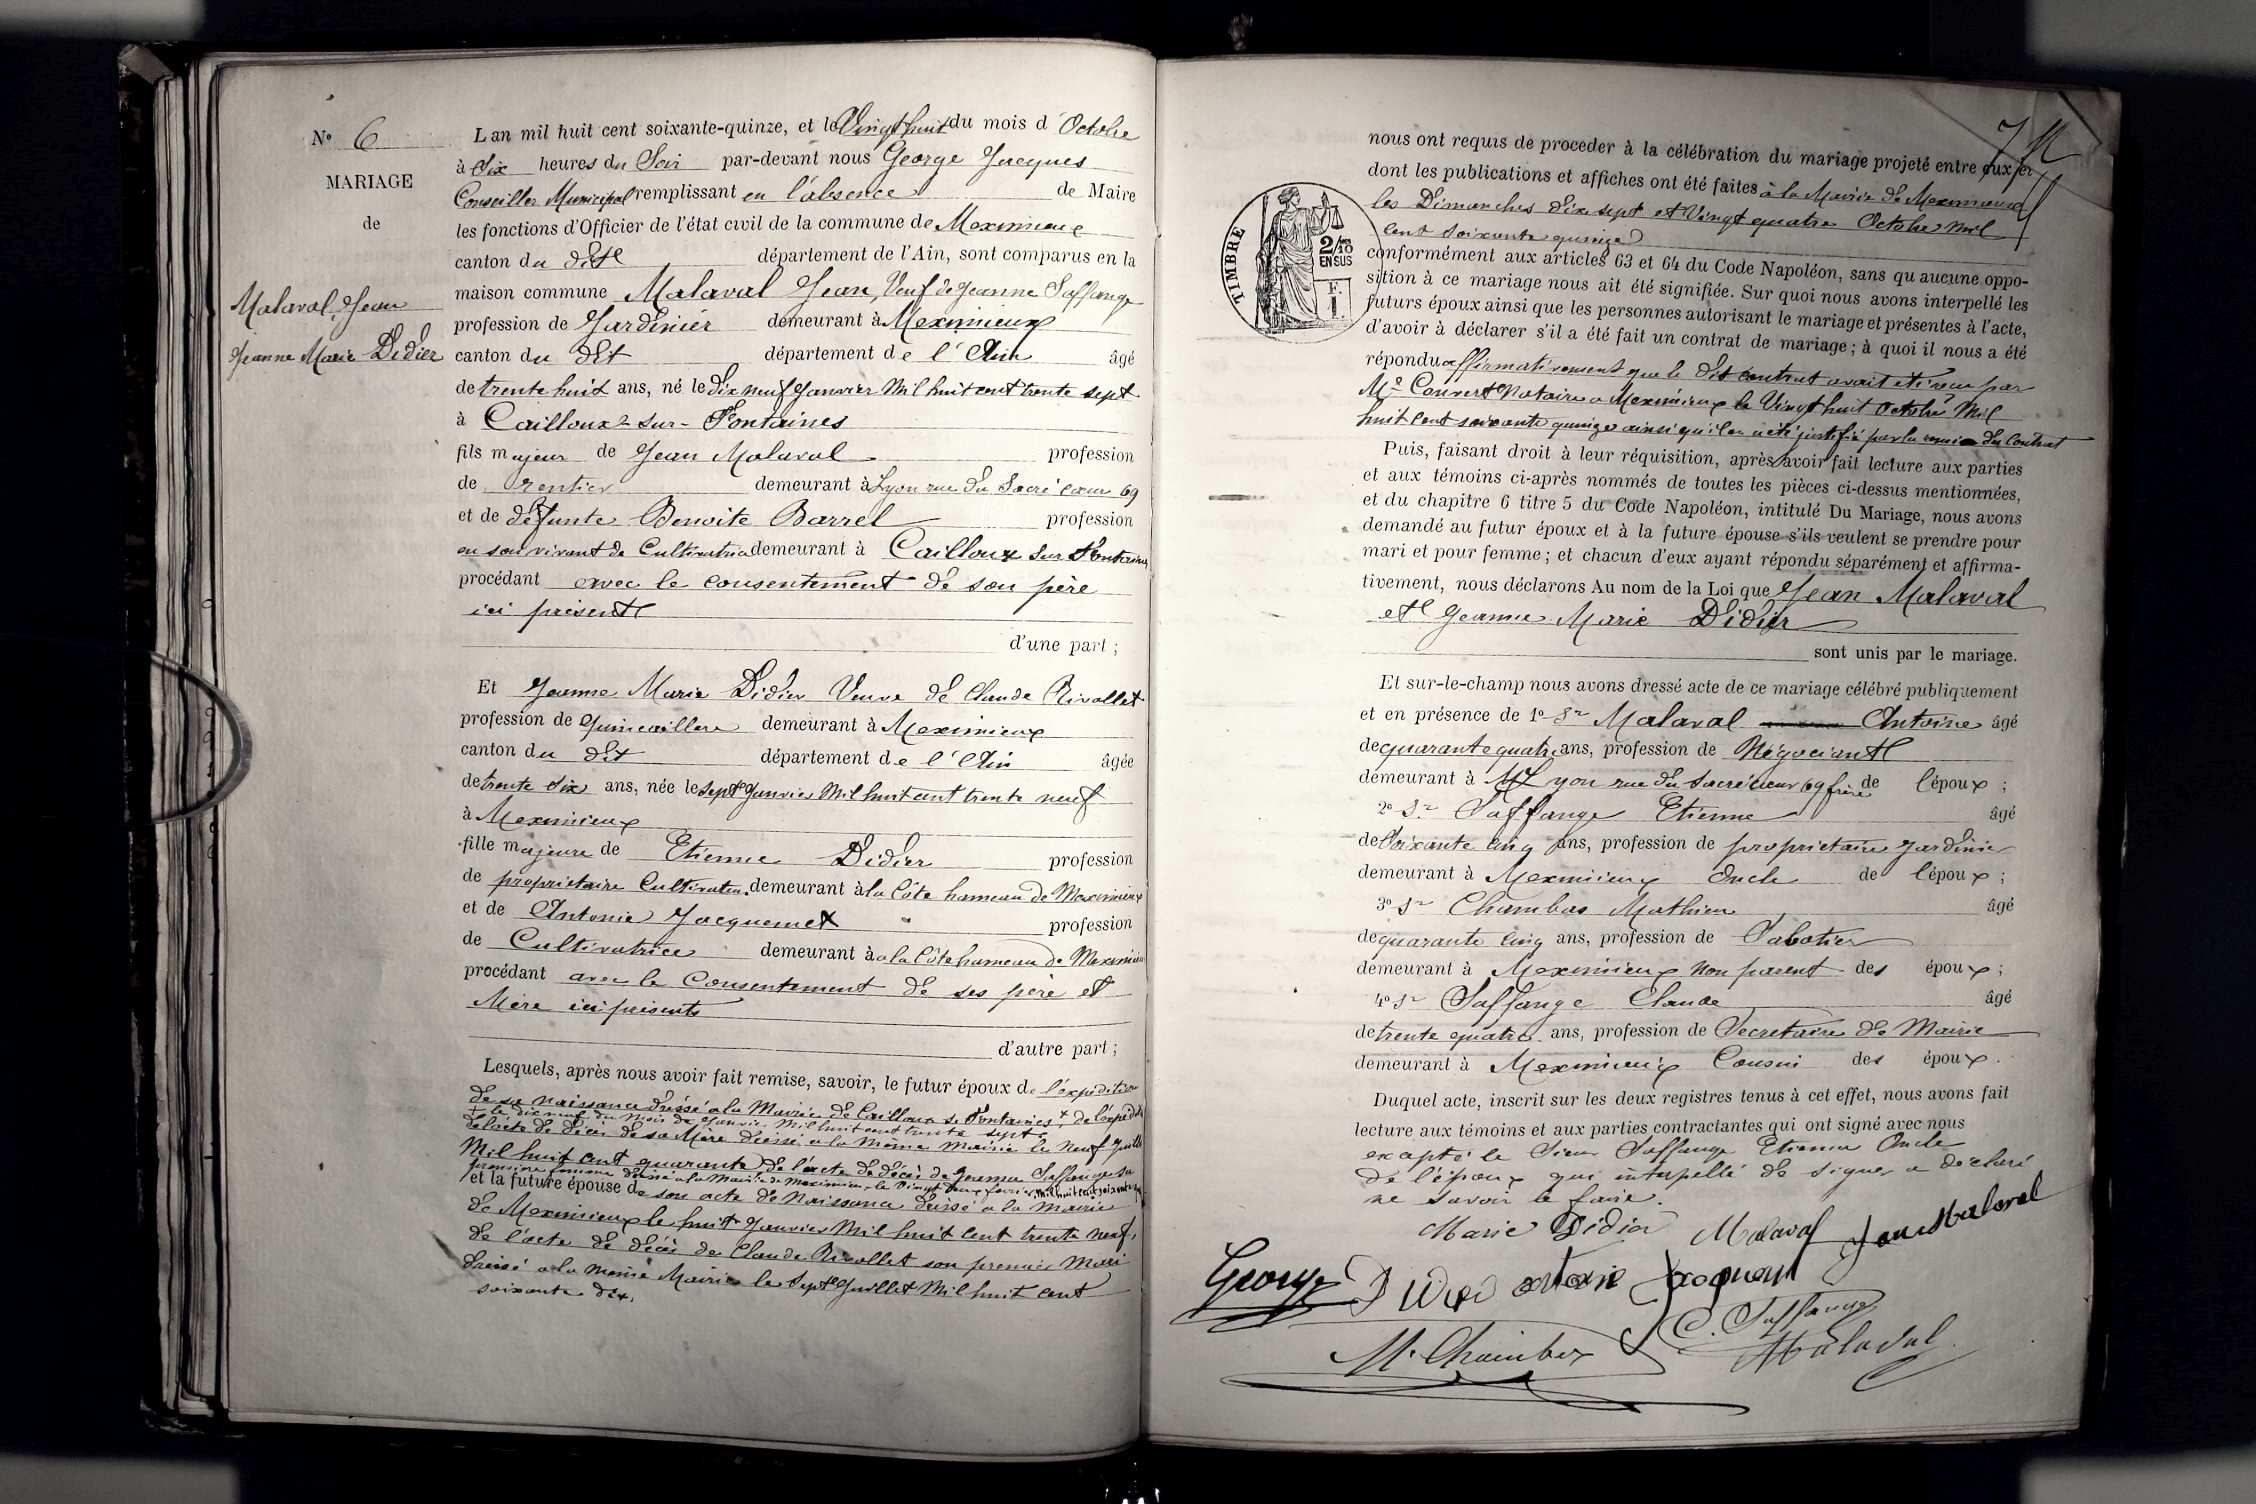 N° 6
MARIAGE
de
Malaval, Jean
Jeanne Marie Didier
L an mil huit cent soixante-quinze, et le Vingt huit du mois d Octobre
à Six heures du Soir par-devant nous George Jacques
Conseiller Municipal remplissant en l'absence de Maire
les fonctions d'Officier de l'état civil de la commune de Meximieux
canton du dit département de l'Ain, sont comparus en la
maison commune Malaval Jean, Veuf de Jeanne Saffange
profession de Jardinier demeurant à Meximieux
canton du dit département de l'Ain âgé
de trente huit ans, né le Dix neuf Janvier Mil huit cent trente sept
à Cailloux sur-Fontaines
fils majeur de Jean Malaval profession
de rentier demeurant à Lyon rue du Sacré cœur 69
et de défunte Benoite Barrel profession
en son vivant de Cultivatrice demeurant à Cailloux sur Fontaines
procédant avec le consentement de son père
ici présent
d'une part ;
Et Jeanne Marie Didier Veuve de Claude Rivollet
profession de Quincaillere demeurant à Meximieux
canton du dit département de l'Ain âgée
de trente six ans, née le sept Janvier Mil huit cent trente neuf
à Meximieux
fille majeure de Etienne Didier profession
de propriétaire Cultivateur demeurant à la Côte hameau de Meximieux
et de Antonie Jacquemet profession
de Cultivatrice demeurant à a la Côte hameau de Meximieux
procédant avec le Consentement de ses père et
Mère ici présents
d'autre part ;
Lesquels, après nous avoir fait remise, savoir, le futur époux de l'expédition
de sa naissance dressé a la Mairie de Cailloux s. Fontaines + de l'expédit
+ le dix neuf du mois de Janvier Mil huit cent trente sept
de l'acte de décès de sa Mère dressé a la même Mairie le Neuf Juillet
Mil huit cent quarante de l'acte de décès de Jeanne Saffange sa
première femme dressé a la Mairie de Meximieux le Vingt deux février Mil huit cent soixante
et la future épouse de son acte de Naissance dressé a la Mairie
de Meximieux le huit Janvier Mil huit cent trente neuf,
de l'acte de décès de Claude Rivollet son premier Mari
dressé a la même Mairie le Sept Juillet Mil huit cent
soixante dix.
nous ont requis de proceder à la célébration du mariage projeté entre eux et
dont les publications et affiches ont été faites à la Mairie de Meximieux
les Dimanches dix sept et Vingt quatre Octobre mil
cent soixante quinze
TIMBRE
2/10
EN SUS
F.
1.
conformément aux articles 63 et 64 du Code Napoléon, sans qu aucune oppo-
sition à ce mariage nous ait été signifiée. Sur quoi nous avons interpellé les
futurs époux ainsi que les personnes autorisant le mariage et présentes à l'acte,
d'avoir à déclarer s'il a été fait un contrat de mariage ; à quoi il nous a été
répondu affirmativement que le dit contrat avait été reçu par
Me Convert Notaire a Meximieux le Vingt huit Octobre Mil
huit cent soixante quinze ainsi qu'il en a été justifié par la remise du Contrat
Puis, faisant droit à leur réquisition, après avoir fait lecture aux parties
et aux témoins ci-après nommés de toutes les pièces ci-dessus mentionnées,
et du chapitre 6 titre 5 du Code Napoléon, intitulé Du Mariage, nous avons
demandé au futur époux et à la future épouse s'ils veulent se prendre pour
mari et pour femme ; et chacun d'eux ayant répondu séparément et affirma-
tivement, nous déclarons Au nom de la Loi que Jean Malaval
et Jeanne Marie Didier
sont unis par le mariage.
Et sur-le-champ nous avons dressé acte de ce mariage célébré publiquement
et en présence de 1° Sr Malaval Antoine âgé
de quarante quatre ans, profession de Négociant
demeurant à Lyon rue du Sacré cœur 69 frère de l'époux ;
2° Sr Saffange Etienne âgé
de Soixante cinq ans, profession de propriétaire jardinier
demeurant à Meximieux Oncle de l'époux ;
3° Sr Chambas Mathieu âgé
de quarante cinq ans, profession de Sabotier
demeurant à Meximieux non parent des époux ;
4° Sr Saffange Claude âgé
de trente quatre ans, profession de Secrétaire de Mairie
demeurant à Meximieux Cousin des époux.
Duquel acte, inscrit sur les deux registres tenus à cet effet, nous avons fait
lecture aux témoins et aux parties contractantes qui ont signé avec nous
excepté le Sieur Saffange Etienne Oncle
de l'époux qui interpellé de signer a déclaré
ne savoir le faire.
Marie Didier Malaval Jean Malaval
George Didier antonie Jacquemet
C. Saffange
M. Chambas Malaval